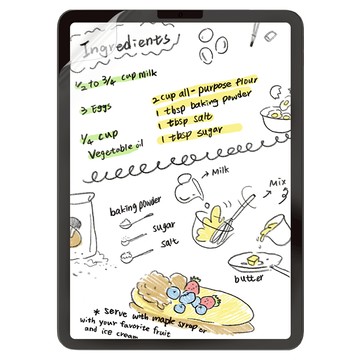 Ingredients
1/2 to 3/4 cup milk
3 Eggs
1/4 cup
Vegetable oil
2 cup all-purpose flour
1 tbsp baking powder
1 tbsp salt
1 tbsp sugar
Milk
Mix
baking powder
sugar
salt
butter
* serve with maple syrop or
with your favorite fruit
and ice cream